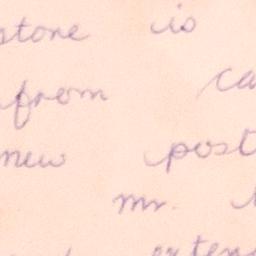 stone is
from ca
new post
mr.
exten